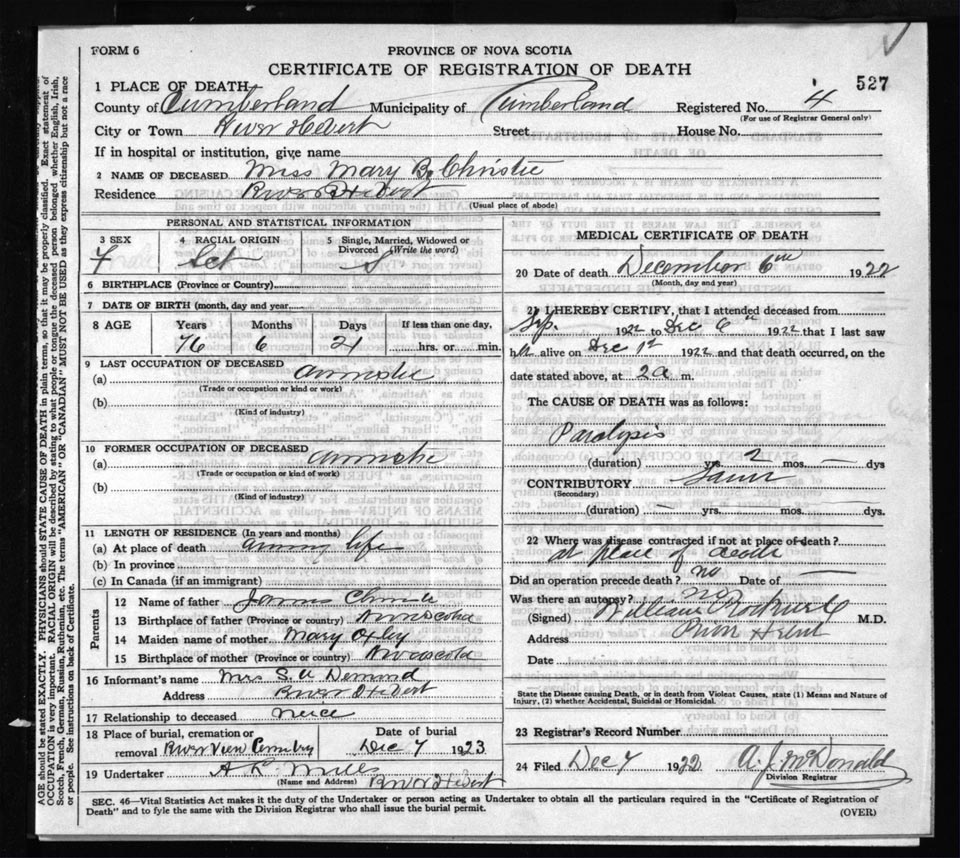 FORM 6
PROVINCE OF NOVA SCOTIA
CERTIFICATE OF REGISTRATION OF DEATH
527
1 PLACE OF DEATH
County of Cumberland Municipality of Cumberland Registered No. 4
(For use of Registrar General only)
City or Town River Hebert Street House No.
If in hospital or institution, give name
2 NAME OF DECEASED Miss Mary B. Christie
Residence River Hebert
(Usual place of abode)
PERSONAL AND STATISTICAL INFORMATION
3 SEX 4 RACIAL ORIGIN 5 Single, Married, Widowed or Divorced (Write the word)
F S
6 BIRTHPLACE (Province or Country)
7 DATE OF BIRTH (month, day and year)
8 AGE Years Months Days If less than one day,
76 6 21 hrs. or min.
9 LAST OCCUPATION OF DECEASED
(a)
(Trade or occupation or kind or work)
(b)
(Kind of industry)
10 FORMER OCCUPATION OF DECEASED
(a)
(Trade or occupation or kind of work)
(b)
(Kind of industry)
11 LENGTH OF RESIDENCE (In years and months)
(a) At place of death during life
(b) In province
(c) In Canada (if an immigrant)
Parents
12 Name of father James Christie
13 Birthplace of father (Province or country) Novascotia
14 Maiden name of mother Mary Oxley
15 Birthplace of mother (Province or country) Novascotia
16 Informant's name Mrs S. A Demond
Address River Hebert
17 Relationship to deceased neice
18 Place of burial, cremation or removal River View Cemetry
Date of burial
Dec 7 1923
19 Undertaker A L Mills
(Name and Address) River Hebert
MEDICAL CERTIFICATE OF DEATH
20 Date of death December 6th 1922
(Month, day and year)
21 I HEREBY CERTIFY, that I attended deceased from
Sep. 1922 to Dec 6th 1922 that I last saw
her alive on Dec 1st 1922 and that death occurred, on the
date stated above, at 2 a m.
The CAUSE OF DEATH was as follows:
Paralysis
(duration) yrs. 2 mos. — dys
CONTRIBUTORY
(Secondary)
(duration) — yrs. mos. dys.
22 Where was disease contracted if not at place of death?
at place of death
Did an operation precede death? no Date of —
Was there an autopsy? no
(Signed) William Rockwell M.D.
Address River Hebert
Date
State the Disease causing Death, or in death from Violent Causes, state (1) Means and Nature of
Injury, (2) whether Accidental, Suicidal or Homicidal.
23 Registrar's Record Number
24 Filed Dec 7 1922 A. J. McDonald
Division Registrar
SEC. 46—Vital Statistics Act makes it the duty of the Undertaker or person acting as Undertaker to obtain all the particulars required in the "Certificate of Registration of
Death" and to fyle the same with the Division Registrar who shall issue the burial permit.
(OVER)
AGE should be stated EXACTLY. PHYSICIANS should STATE CAUSE OF DEATH in plain terms, so that it may be properly classified. Exact statement of
OCCUPATION is very important. RACIAL ORIGIN will be described by stating to what people or tongue the deceased person belonged whether English, Irish,
Scotch, French, German, Russian, Ruthenian, etc. The terms "AMERICAN" OR "CANADIAN" MUST NOT BE USED as they express citizenship but not a race
or people. See instructions on back of Certificate.